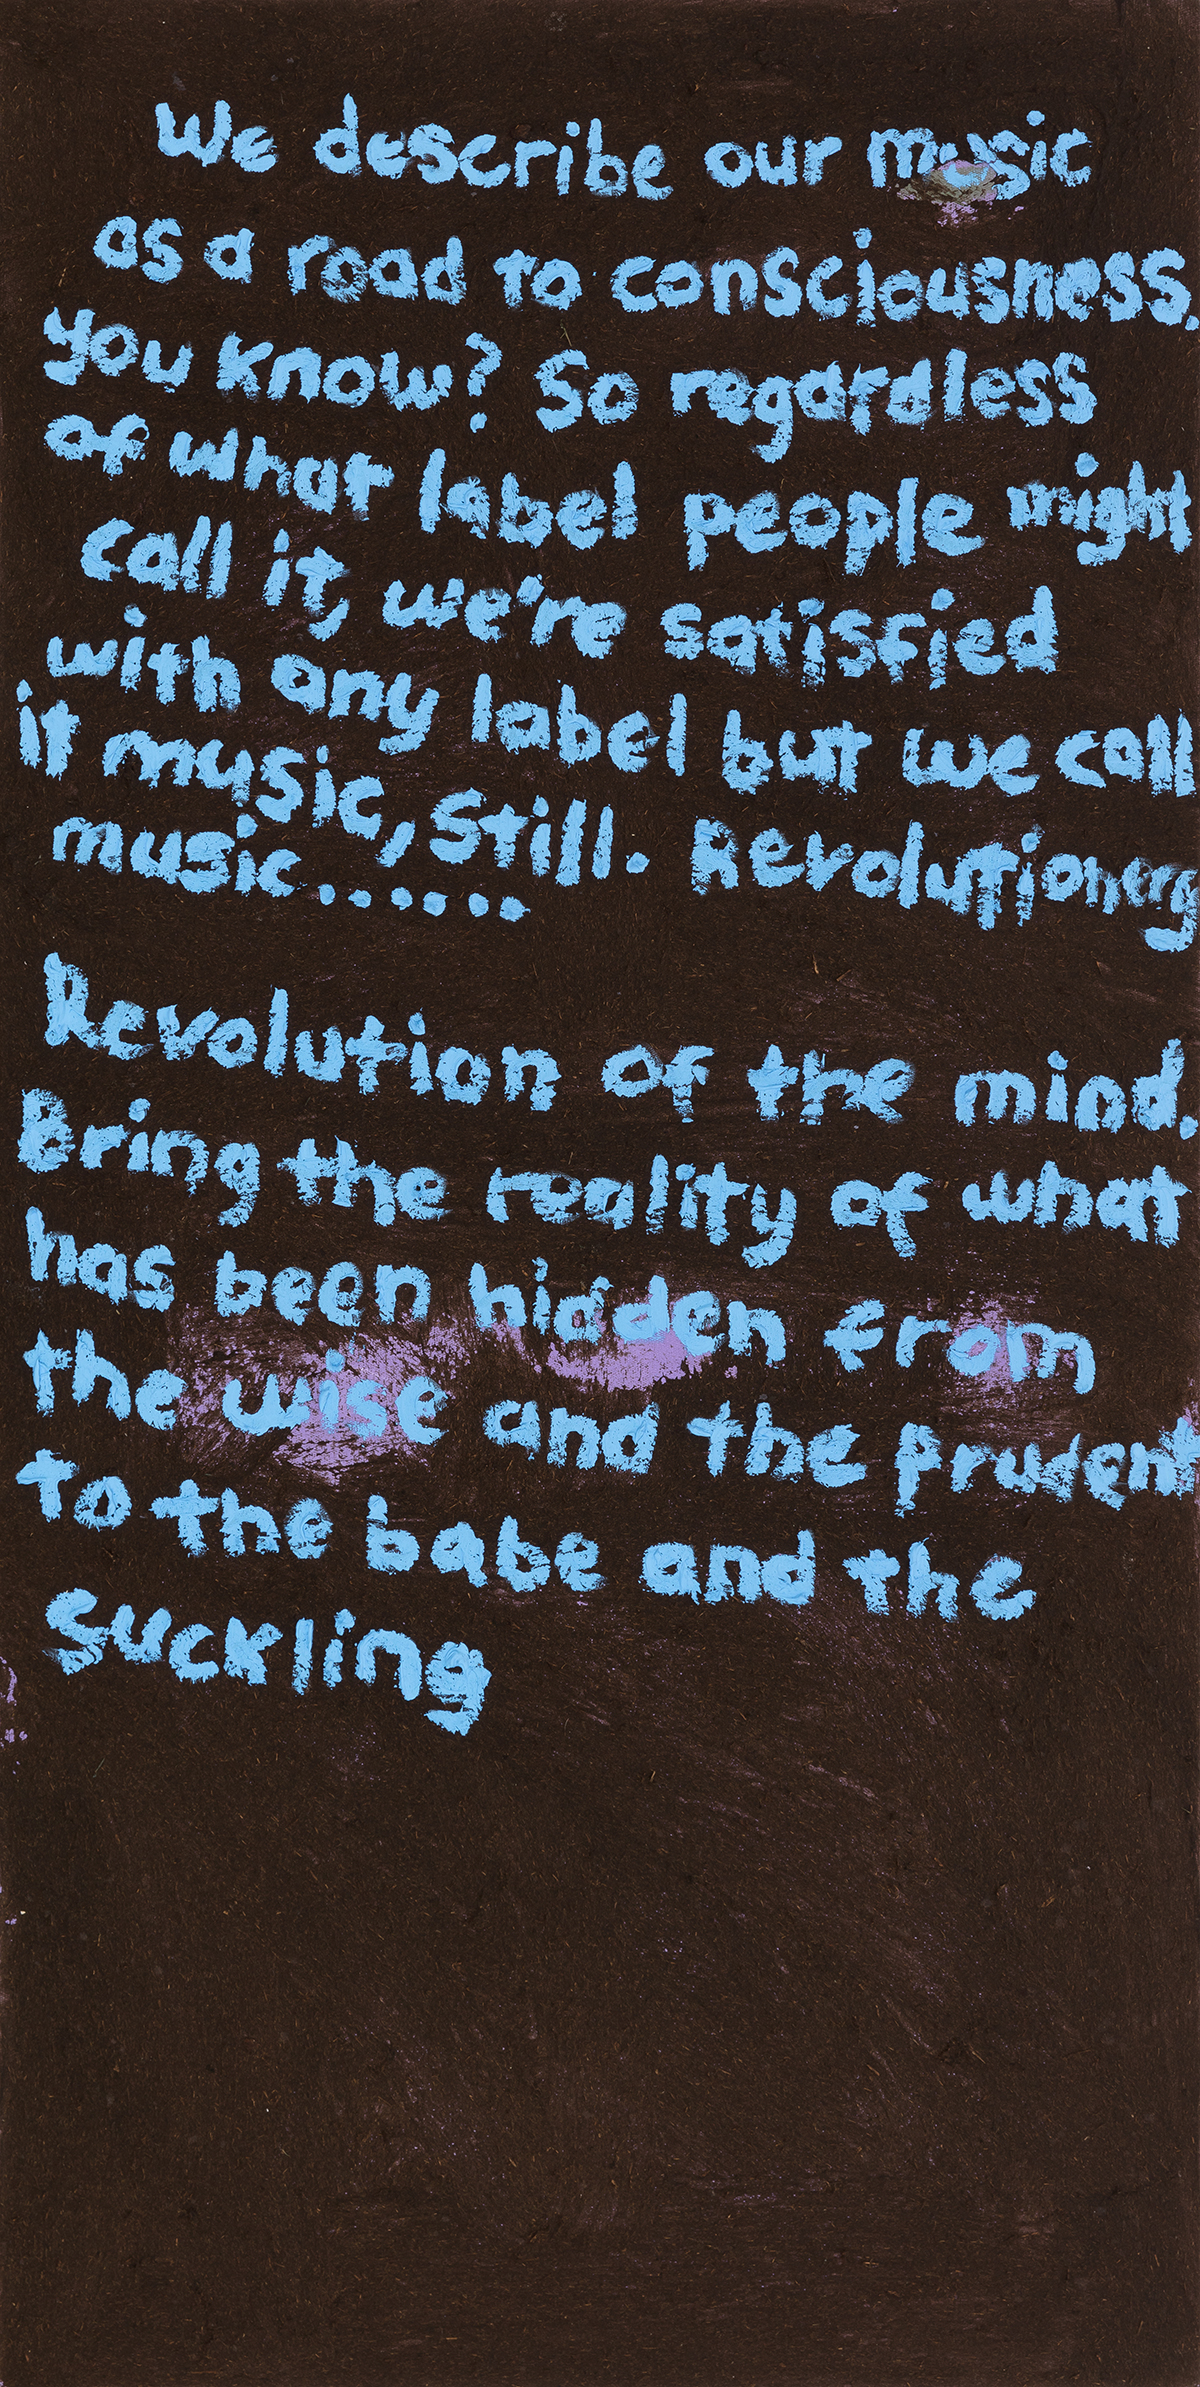 We describe our music
as a road to consciousness,
you know? So regardless
of what label people might
call it, we're satisfied
with any label but we call
it music, Still. Revolutionary
music......
Revolution of the mind.
Bring the reality of what
has been hidden from
the wise and the prudent
to the babe and the
suckling